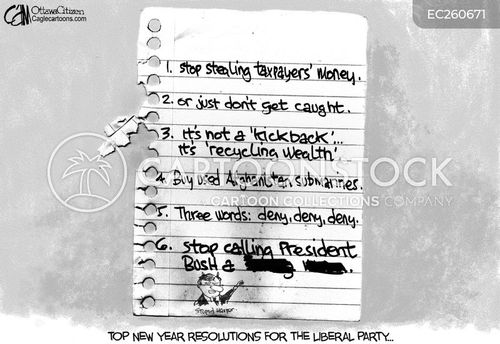 CAM
OttawaCitizen
Caglecartoons.com
EC260671
1. Stop stealing taxpayers' money.
2. or just don't get caught.
3. it's not a 'kickback'...
it's 'recycling wealth'.
4. Buy used Afghanistan submarines.
5. Three words: deny, deny, deny.
6. Stop calling President
Bush a
CARTOONSTOCK
CARTOON COLLECTIONS COMPANY
Stupid Harper
TOP NEW YEAR RESOLUTIONS FOR THE LIBERAL PARTY...